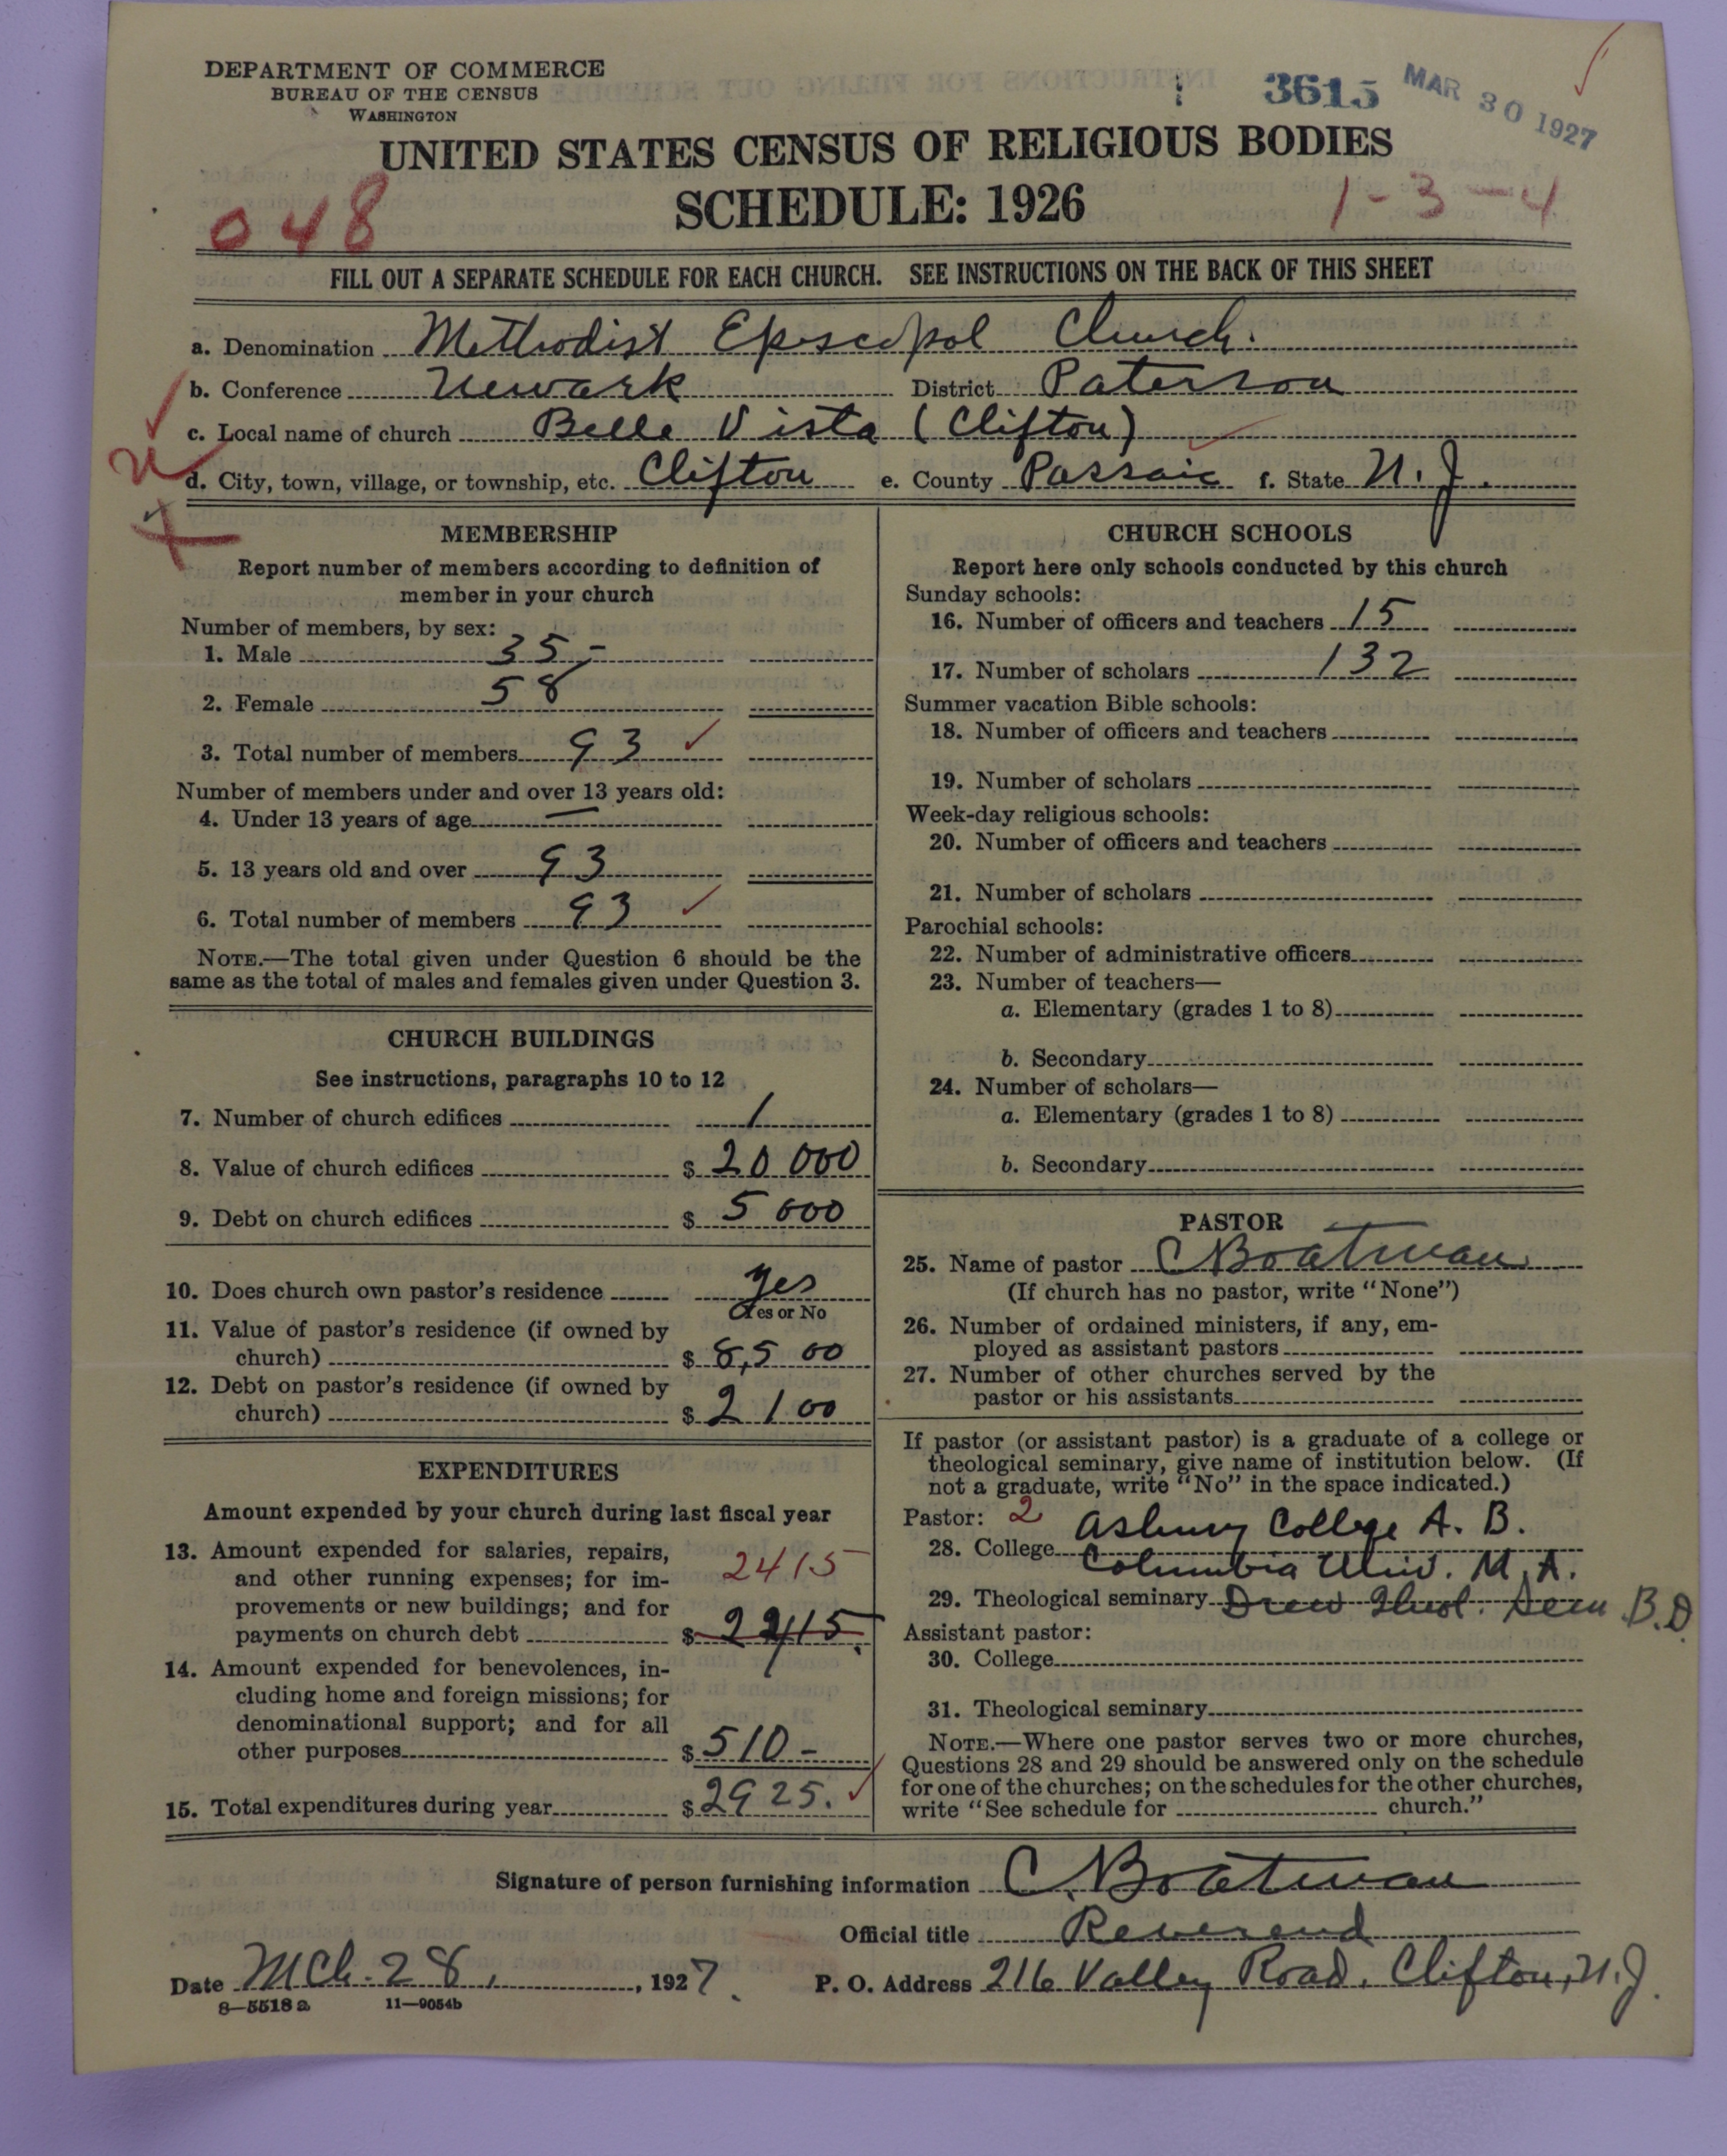 DEPARTMENT OF COMMERCE
BUREAU OF THE CENSUS
WASHINGTON
3615
MAR 30 1927
UNITED STATES CENSUS OF RELIGIOUS BODIES
SCHEDULE: 1926
048
1-3-4
FILL OUT A SEPARATE SCHEDULE FOR EACH CHURCH. SEE INSTRUCTIONS ON THE BACK OF THIS SHEET
a. Denomination Methodist Episcopol Church.
b. Conference Newark District Paterson
c. Local name of church Belle Vista (Clifton)
d. City, town, village, or township, etc. Clifton e. County Passaic f. State N. J.
MEMBERSHIP
Report number of members according to definition of
member in your church
Number of members, by sex:
1. Male 35-
2. Female 58
3. Total number of members 93
Number of members under and over 13 years old:
4. Under 13 years of age —
5. 13 years old and over 93
6. Total number of members 93
NOTE.—The total given under Question 6 should be the
same as the total of males and females given under Question 3.
CHURCH BUILDINGS
See instructions, paragraphs 10 to 12
7. Number of church edifices 1
8. Value of church edifices $ 20 000
9. Debt on church edifices $ 5 000
10. Does church own pastor's residence Yes
Yes or No
11. Value of pastor's residence (if owned by
church) $ 8,5 00
12. Debt on pastor's residence (if owned by
church) $ 21 00
EXPENDITURES
Amount expended by your church during last fiscal year
13. Amount expended for salaries, repairs,
and other running expenses; for im-
provements or new buildings; and for
payments on church debt $
2415
14. Amount expended for benevolences, in-
cluding home and foreign missions; for
denominational support; and for all
other purposes $ 510-
15. Total expenditures during year $ 2925.
CHURCH SCHOOLS
Report here only schools conducted by this church
Sunday schools:
16. Number of officers and teachers 15
17. Number of scholars 132
Summer vacation Bible schools:
18. Number of officers and teachers
19. Number of scholars
Week-day religious schools:
20. Number of officers and teachers
21. Number of scholars
Parochial schools:
22. Number of administrative officers
23. Number of teachers—
a. Elementary (grades 1 to 8)
b. Secondary
24. Number of scholars—
a. Elementary (grades 1 to 8)
b. Secondary
PASTOR
25. Name of pastor C Boatman
(If church has no pastor, write "None")
26. Number of ordained ministers, if any, em-
ployed as assistant pastors
27. Number of other churches served by the
pastor or his assistants
If pastor (or assistant pastor) is a graduate of a college or
theological seminary, give name of institution below. (If
not a graduate, write "No" in the space indicated.)
Pastor: 2 Asbury College A. B.
28. College Columbia Univ. M. A.
29. Theological seminary Drew Theol. Sem B.D
Assistant pastor:
30. College
31. Theological seminary
NOTE.—Where one pastor serves two or more churches,
Questions 28 and 29 should be answered only on the schedule
for one of the churches; on the schedules for the other churches,
write "See schedule for church."
Signature of person furnishing information C. Boatman
Official title Reverend
Date Mch. 28, 1927. P. O. Address 216 Valley Road, Clifton, N.J.
8—5518 a 11—9054b